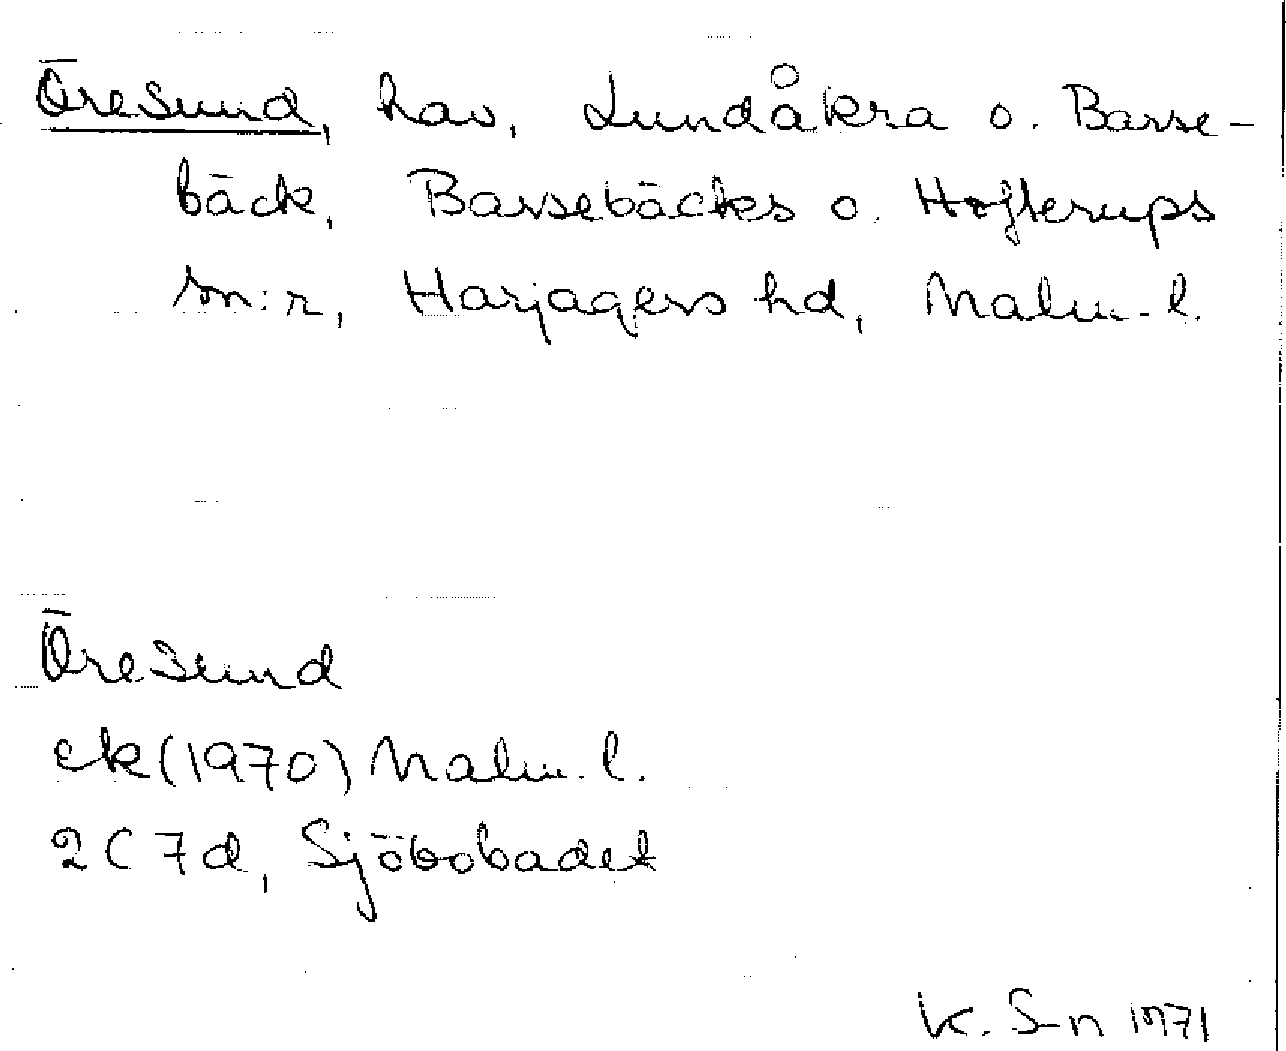 Öresund, hav, Lundåkra o. Barse-
bäck, Barsebäcks o. Hofterups
sn:r, Harjagers hd, Malm. l.
Öresund
ek (1970) Malm. l.
2C 7d, Sjöbobadet
K. S-n 1971